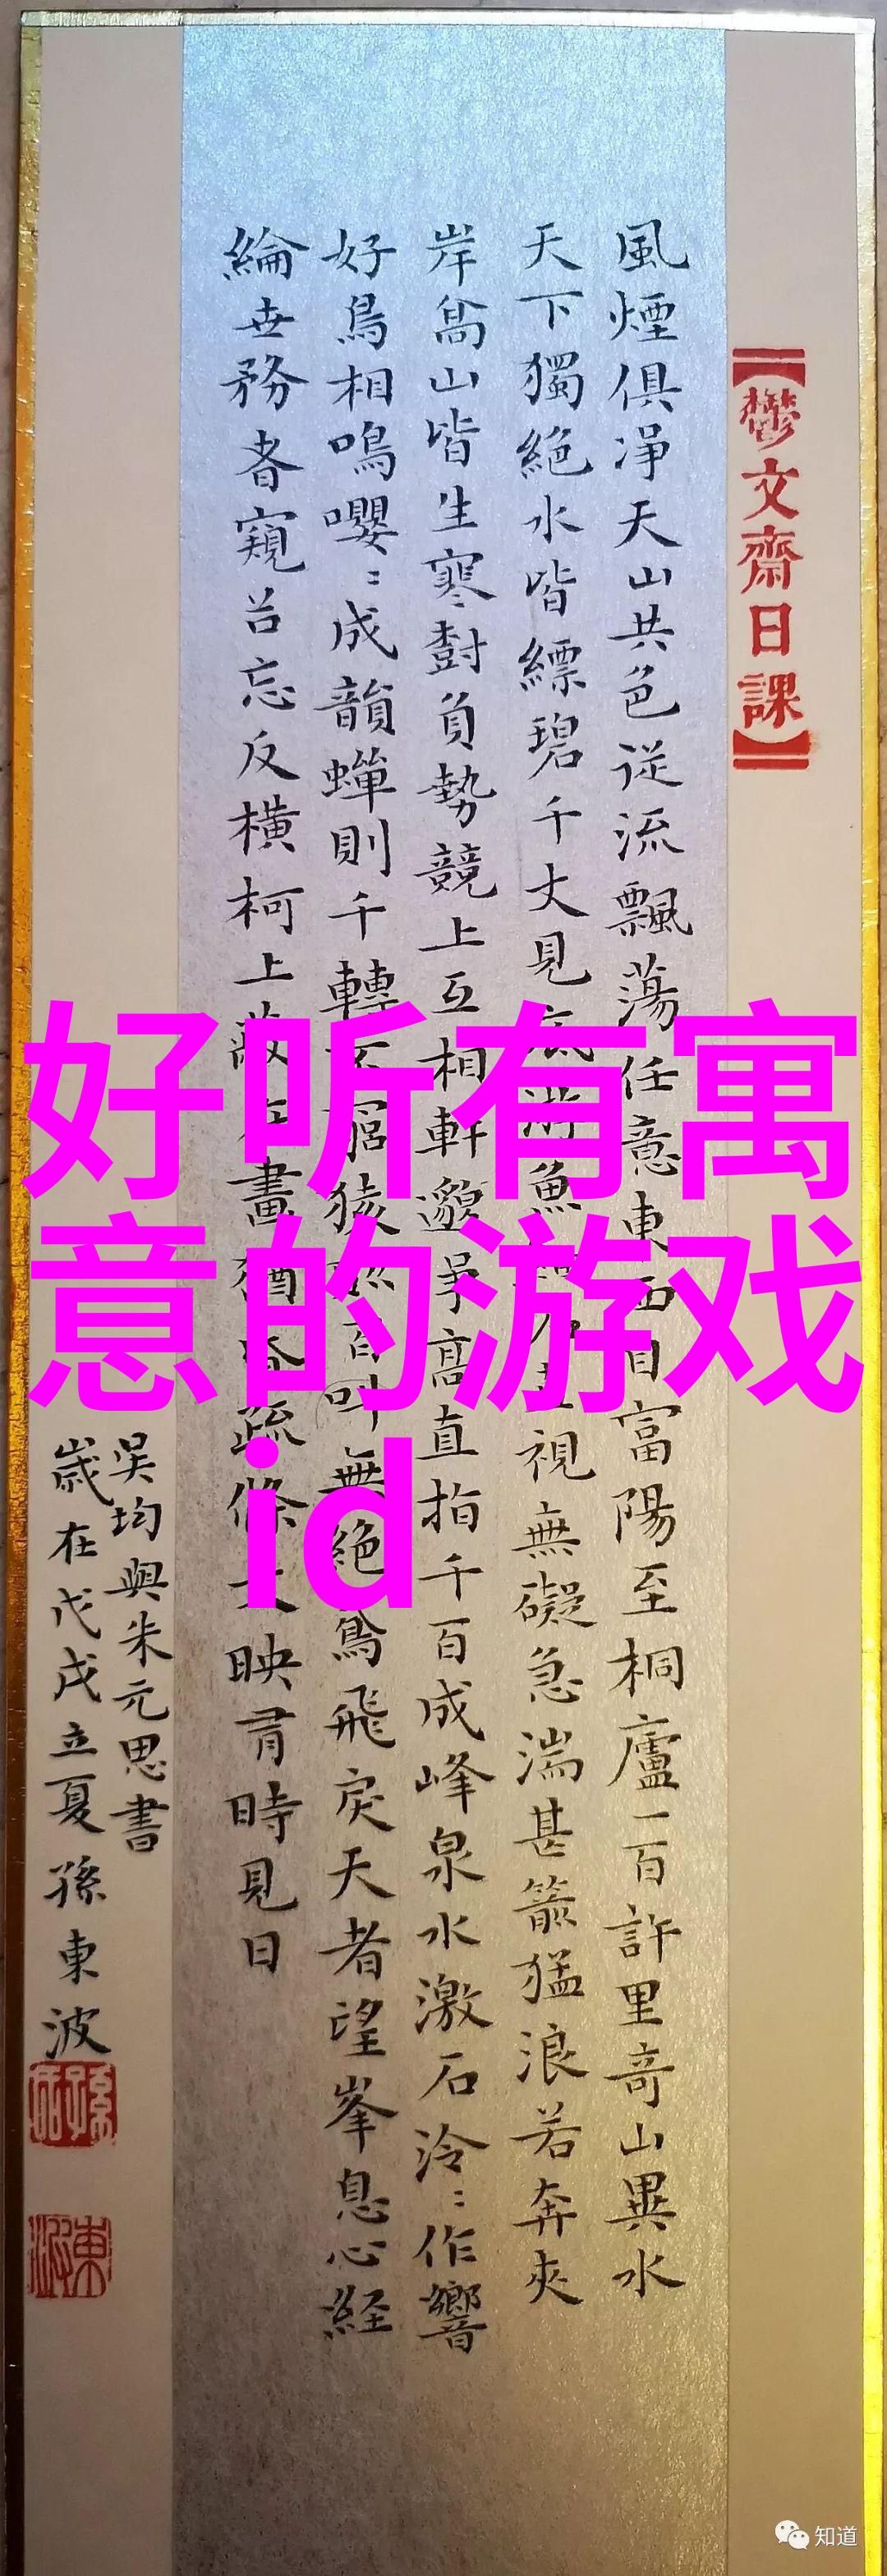 【鬱文齋日課】
風煙俱淨天山共色從流飄蕩任意東西自富陽至桐廬一百許里奇山異水
天下獨絕水皆縹碧千丈見底游魚視無礙急湍甚箭猛浪若奔夾
岸高山皆生寒樹負勢競上互相軒邈爭高直指千百成峰泉水激石泠〻作響
好鳥相鳴嚶〻成韻蟬則千轉不窮猿百叫無絕鳶飛戾天者望峯息心経
綸世務者窺谷忘反橫柯上蔽在晝猶昏疏條映有時見日
吳均與朱元思書
歲在戊戌立夏孫東波
好听有寓
意的游戏
id
知道